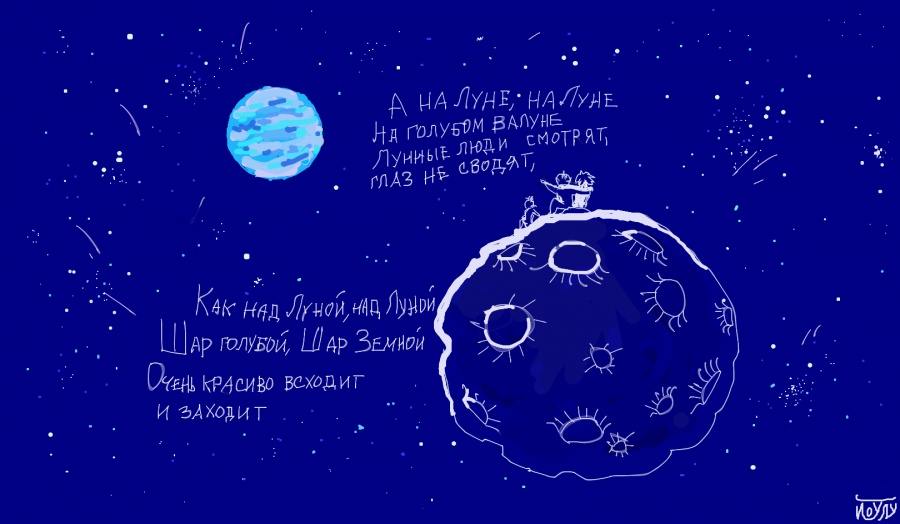 А НА ЛУНЕ, НА ЛУНЕ
НА ГОЛУБОМ ВАЛУНЕ
ЛУННЫЕ ЛЮДИ СМОТРЯТ,
ГЛАЗ НЕ СВОДЯТ,
КАК НАД ЛУНОЙ, НАД ЛУНОЙ
ШАР ГОЛУБОЙ, ШАР ЗЕМНОЙ
ОЧЕНЬ КРАСИВО ВСХОДИТ
И ЗАХОДИТ